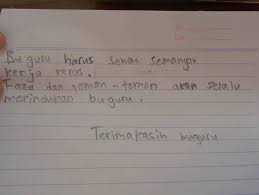 Bu guru harus sehat semangat
kerja keras.
Faza dan teman-teman akan selalu
merindukan buguru.
Terimakasih buguru